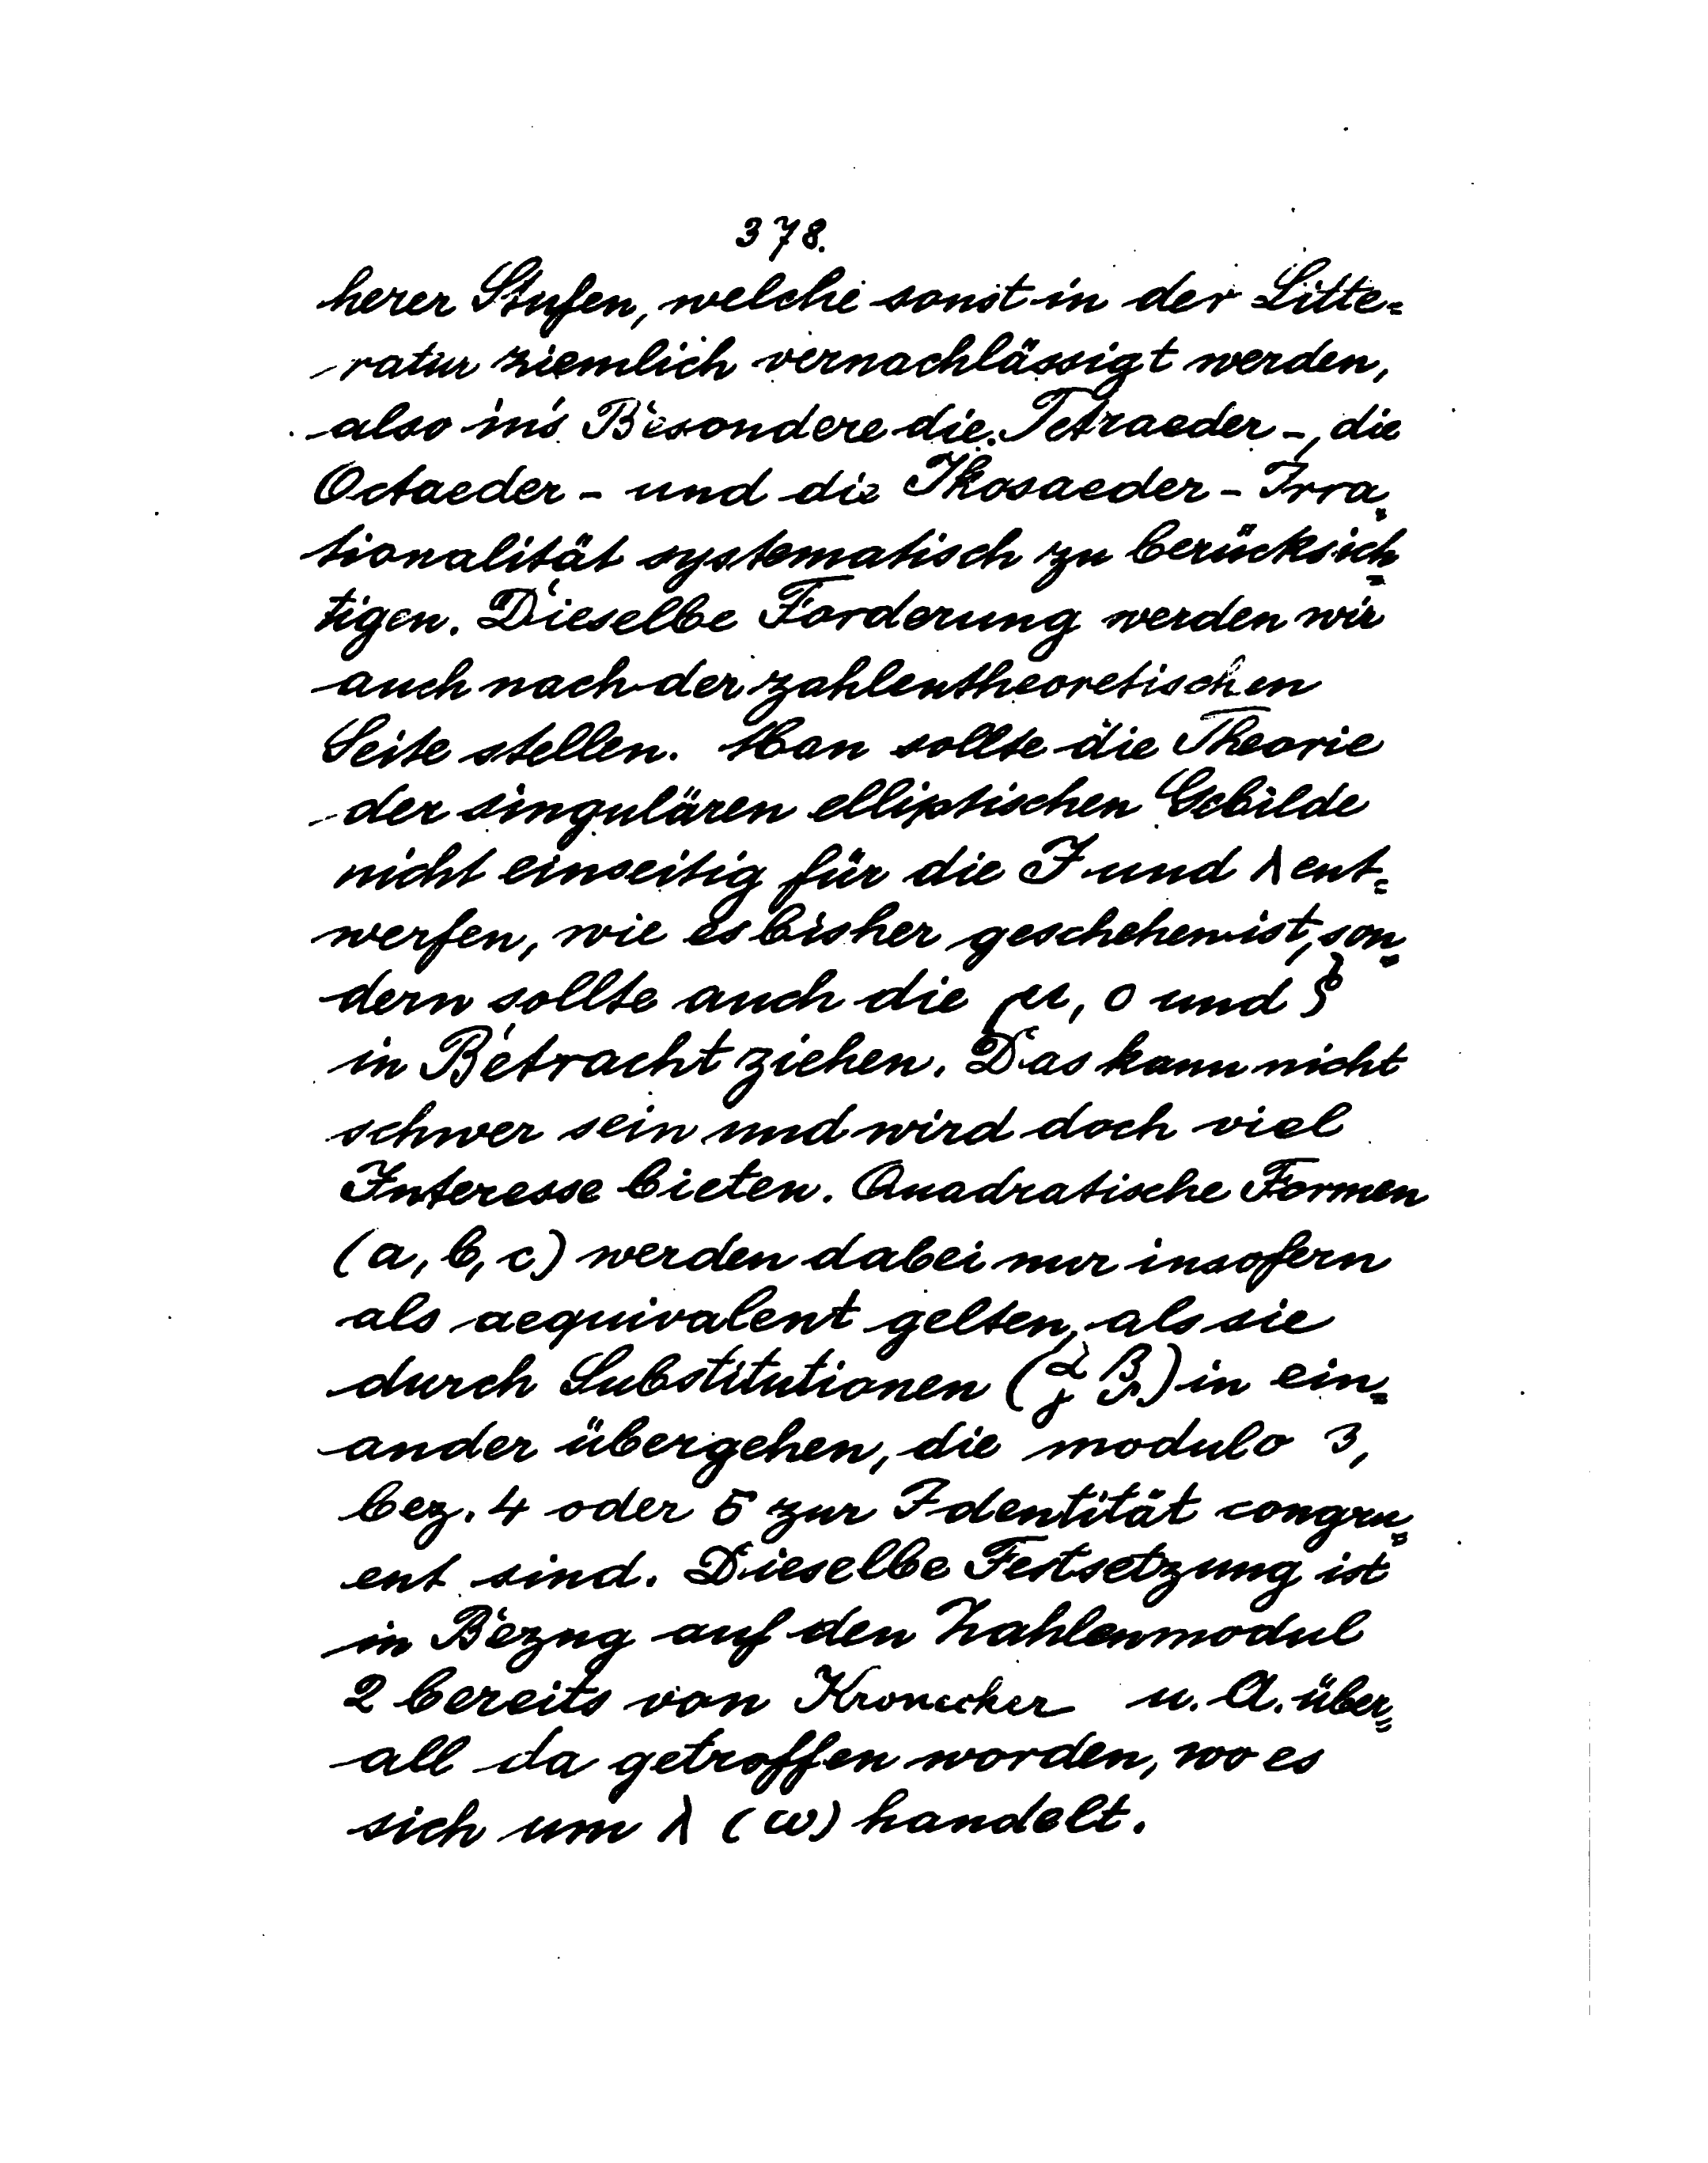 378.
herer Stufen, welche sonst in der Litte=
ratur ziemlich vernachlässigt werden,
also in's Besondere die Tetraeder-, die
Octaeder- und die Ikosaeder-Irra=
tionalität systematisch zu berücksich=
tigen. Dieselbe Forderung werden wir
auch nach der zahlentheoretischen
Seite stellen. Man sollte die Theorie
der singulären elliptischen Gebilde
nicht einseitig für die J und λ ent=
werfen, wie es bisher geschehen ist, son=
dern sollte auch die μ, o und ζ
in Betracht ziehen. Das kann nicht
schwer sein und wird doch viel
Interesse bieten. Quadratische Formen
(a, b, c) werden dabei nur insofern
als aequivalent gelten, als sie
durch Substitutionen (α β γ δ) in ein=
ander übergehen, die modulo 3,
bez. 4 oder 5 zur Identität congru=
ent sind. Dieselbe Festsetzung ist
in Bezug auf den Zahlenmodul
2 bereits von Kronecker u. A. über=
all da getroffen worden, wo es
sich um λ (ω) handelt.